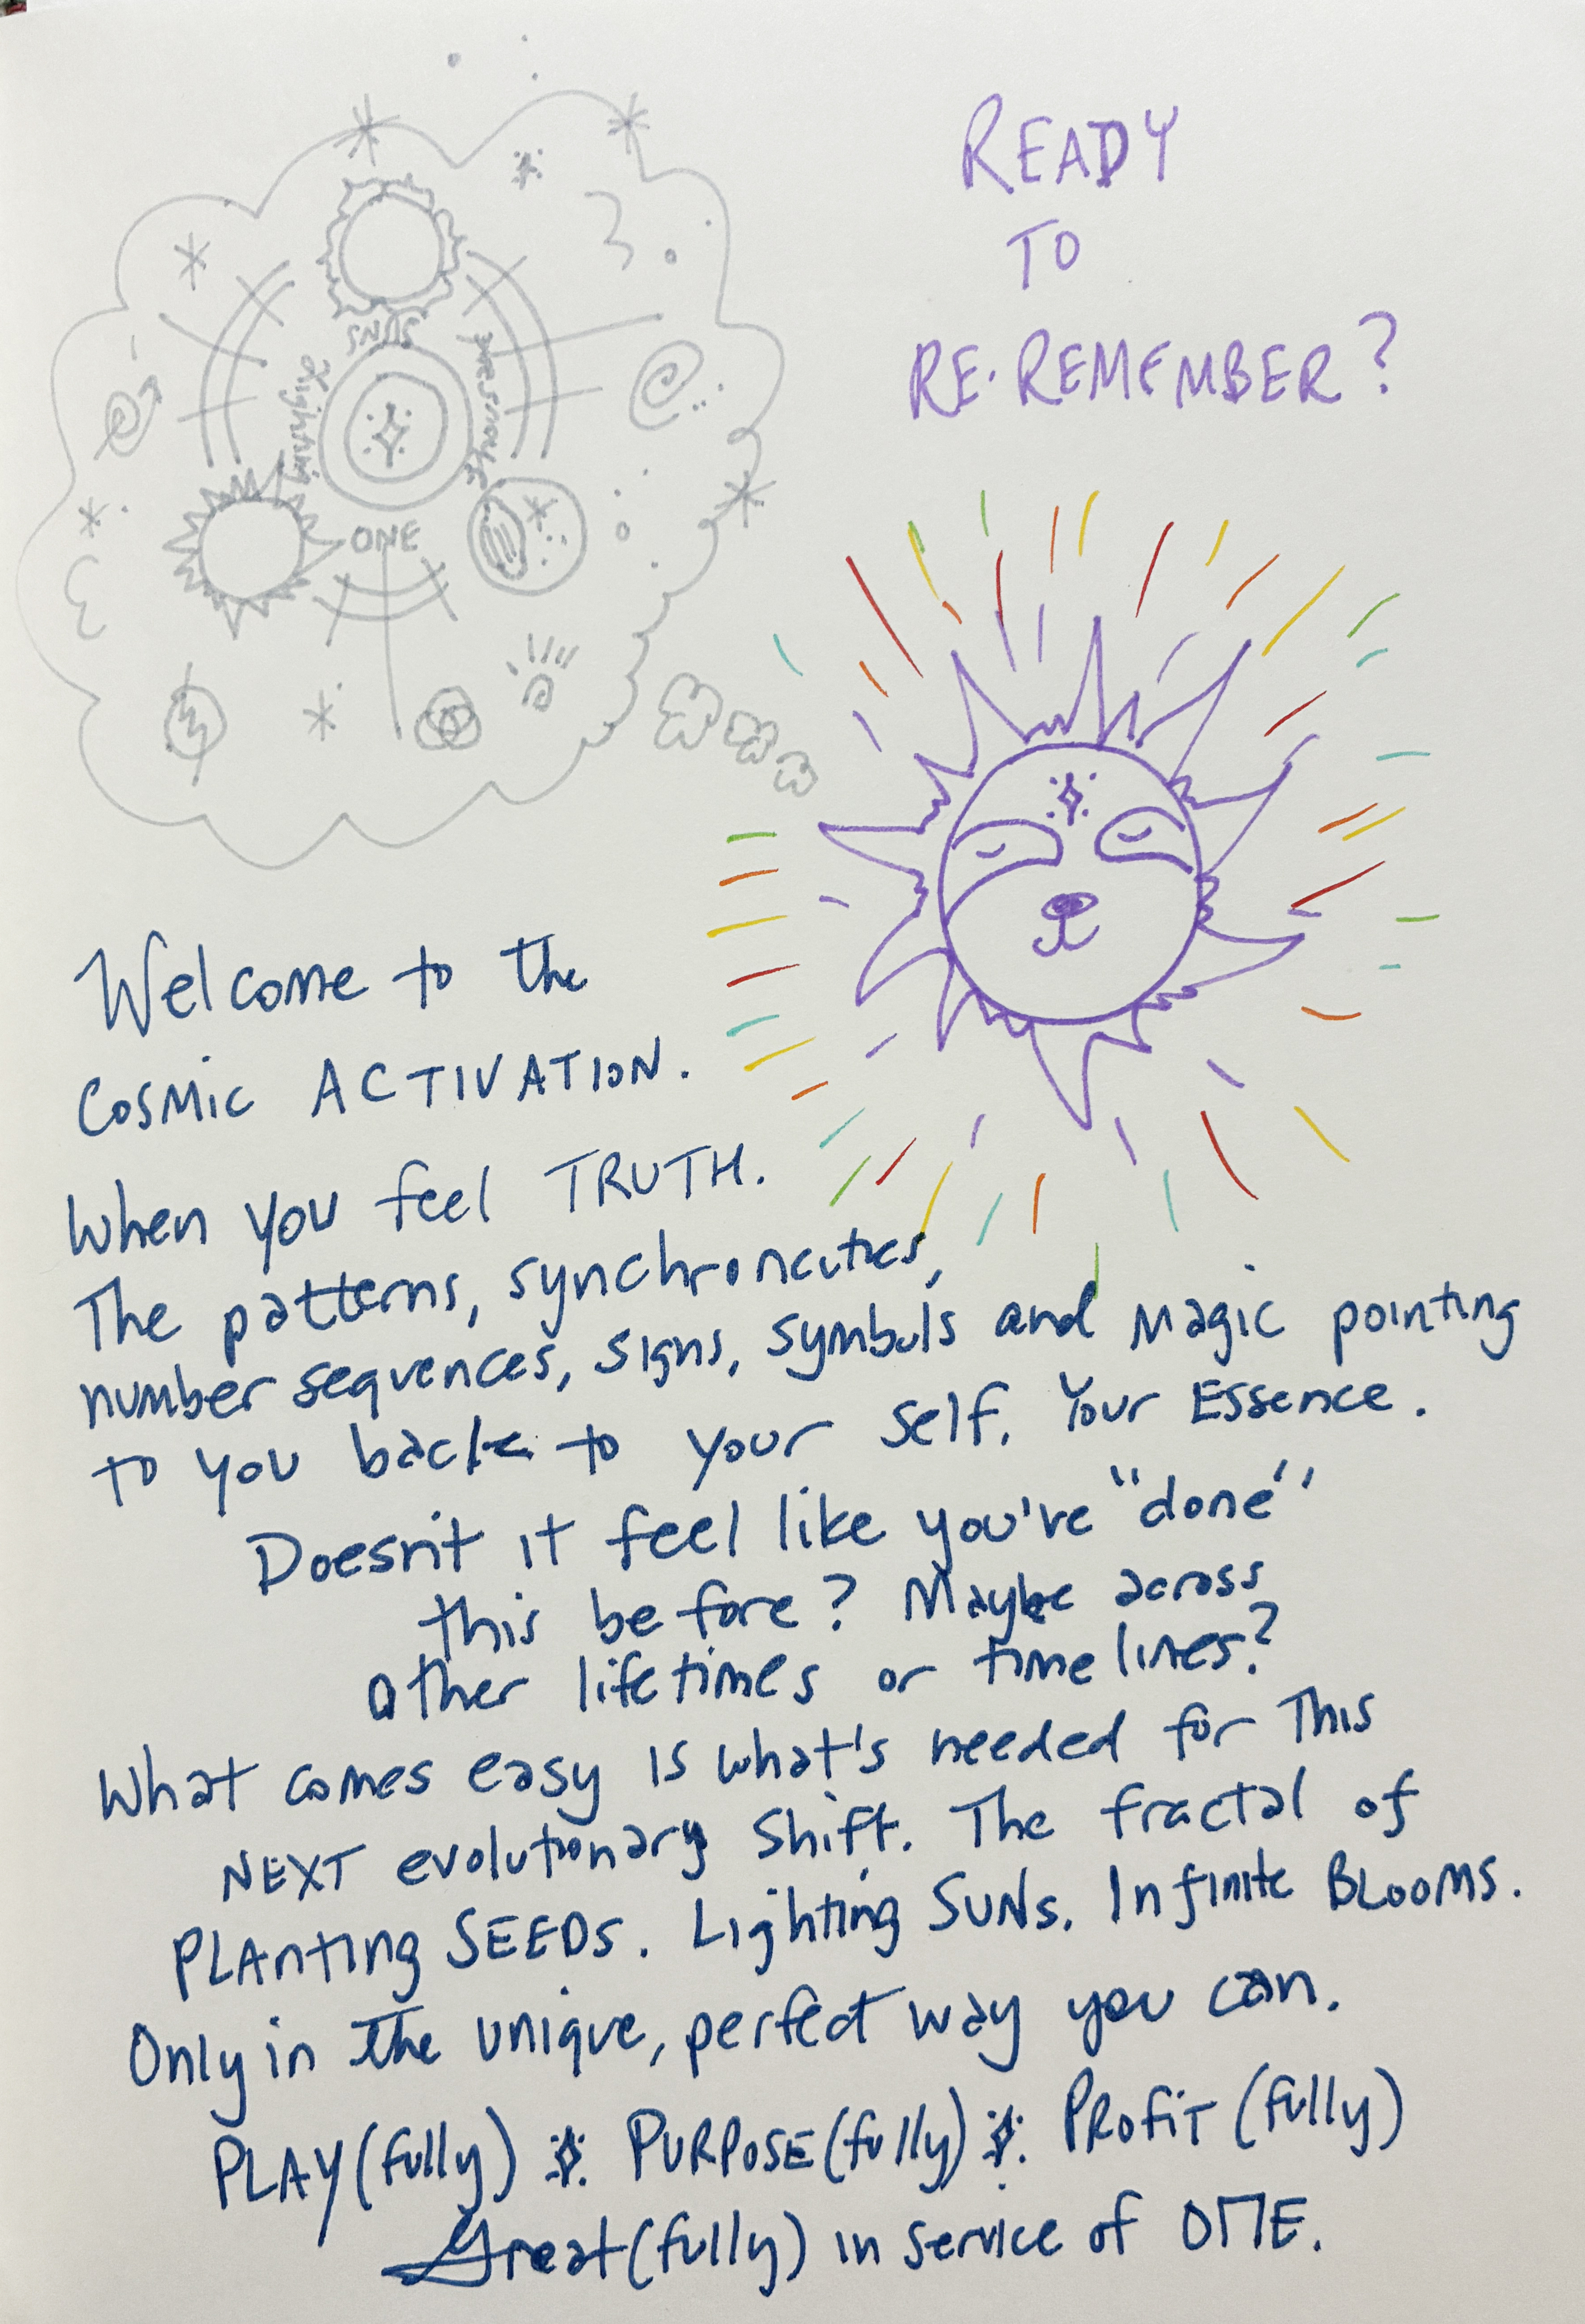 READY
TO
RE·REMEMBER?
SUNS
Lighting
thousand
ONE
Welcome to the
COSMIC ACTIVATION.
When you feel TRUTH.
The patterns, synchroncities,
number sequences, signs, symbols and magic pointing
to you back to your self. Your Essence.
Doesn't it feel like you've "done"
this before? Maybe across
other lifetimes or timelines?
What comes easy is what's needed for This
NEXT evolutionary shift. The fractal of
PLANTING SEEDS. Lighting SUNs. Infinite BLOOMS.
Only in the unique, perfect way you can.
PLAY(fully) PURPOSE(fully) PROFIT(fully)
Great(fully) in service of ONE.